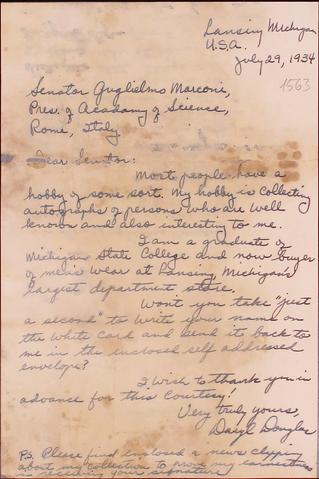 Lansing Michigan
U.S.A.
July 29, 1934
1563
Senator Guglielmo Marconi,
Pres. of Academy of Science,
Rome, Italy.
Dear Senator:
Most people have a
hobby of some sort. My hobby is collecting
autographs of persons who are well
known and also interesting to me.
I am a graduate of
Michigan State College and now buyer
of men's wear at Lansing, Michigan's
largest department store.
Won't you take "just
a second" to write your name on
the white card and send it back to
me in the inclosed self addressed
envelope?
I wish to thank you in
advance for this courtesy!
Very truly yours,
Daryl Douglas
P.S. Please find enclosed a news clipping
about my collection to prove my earnestness
in receiving your signature